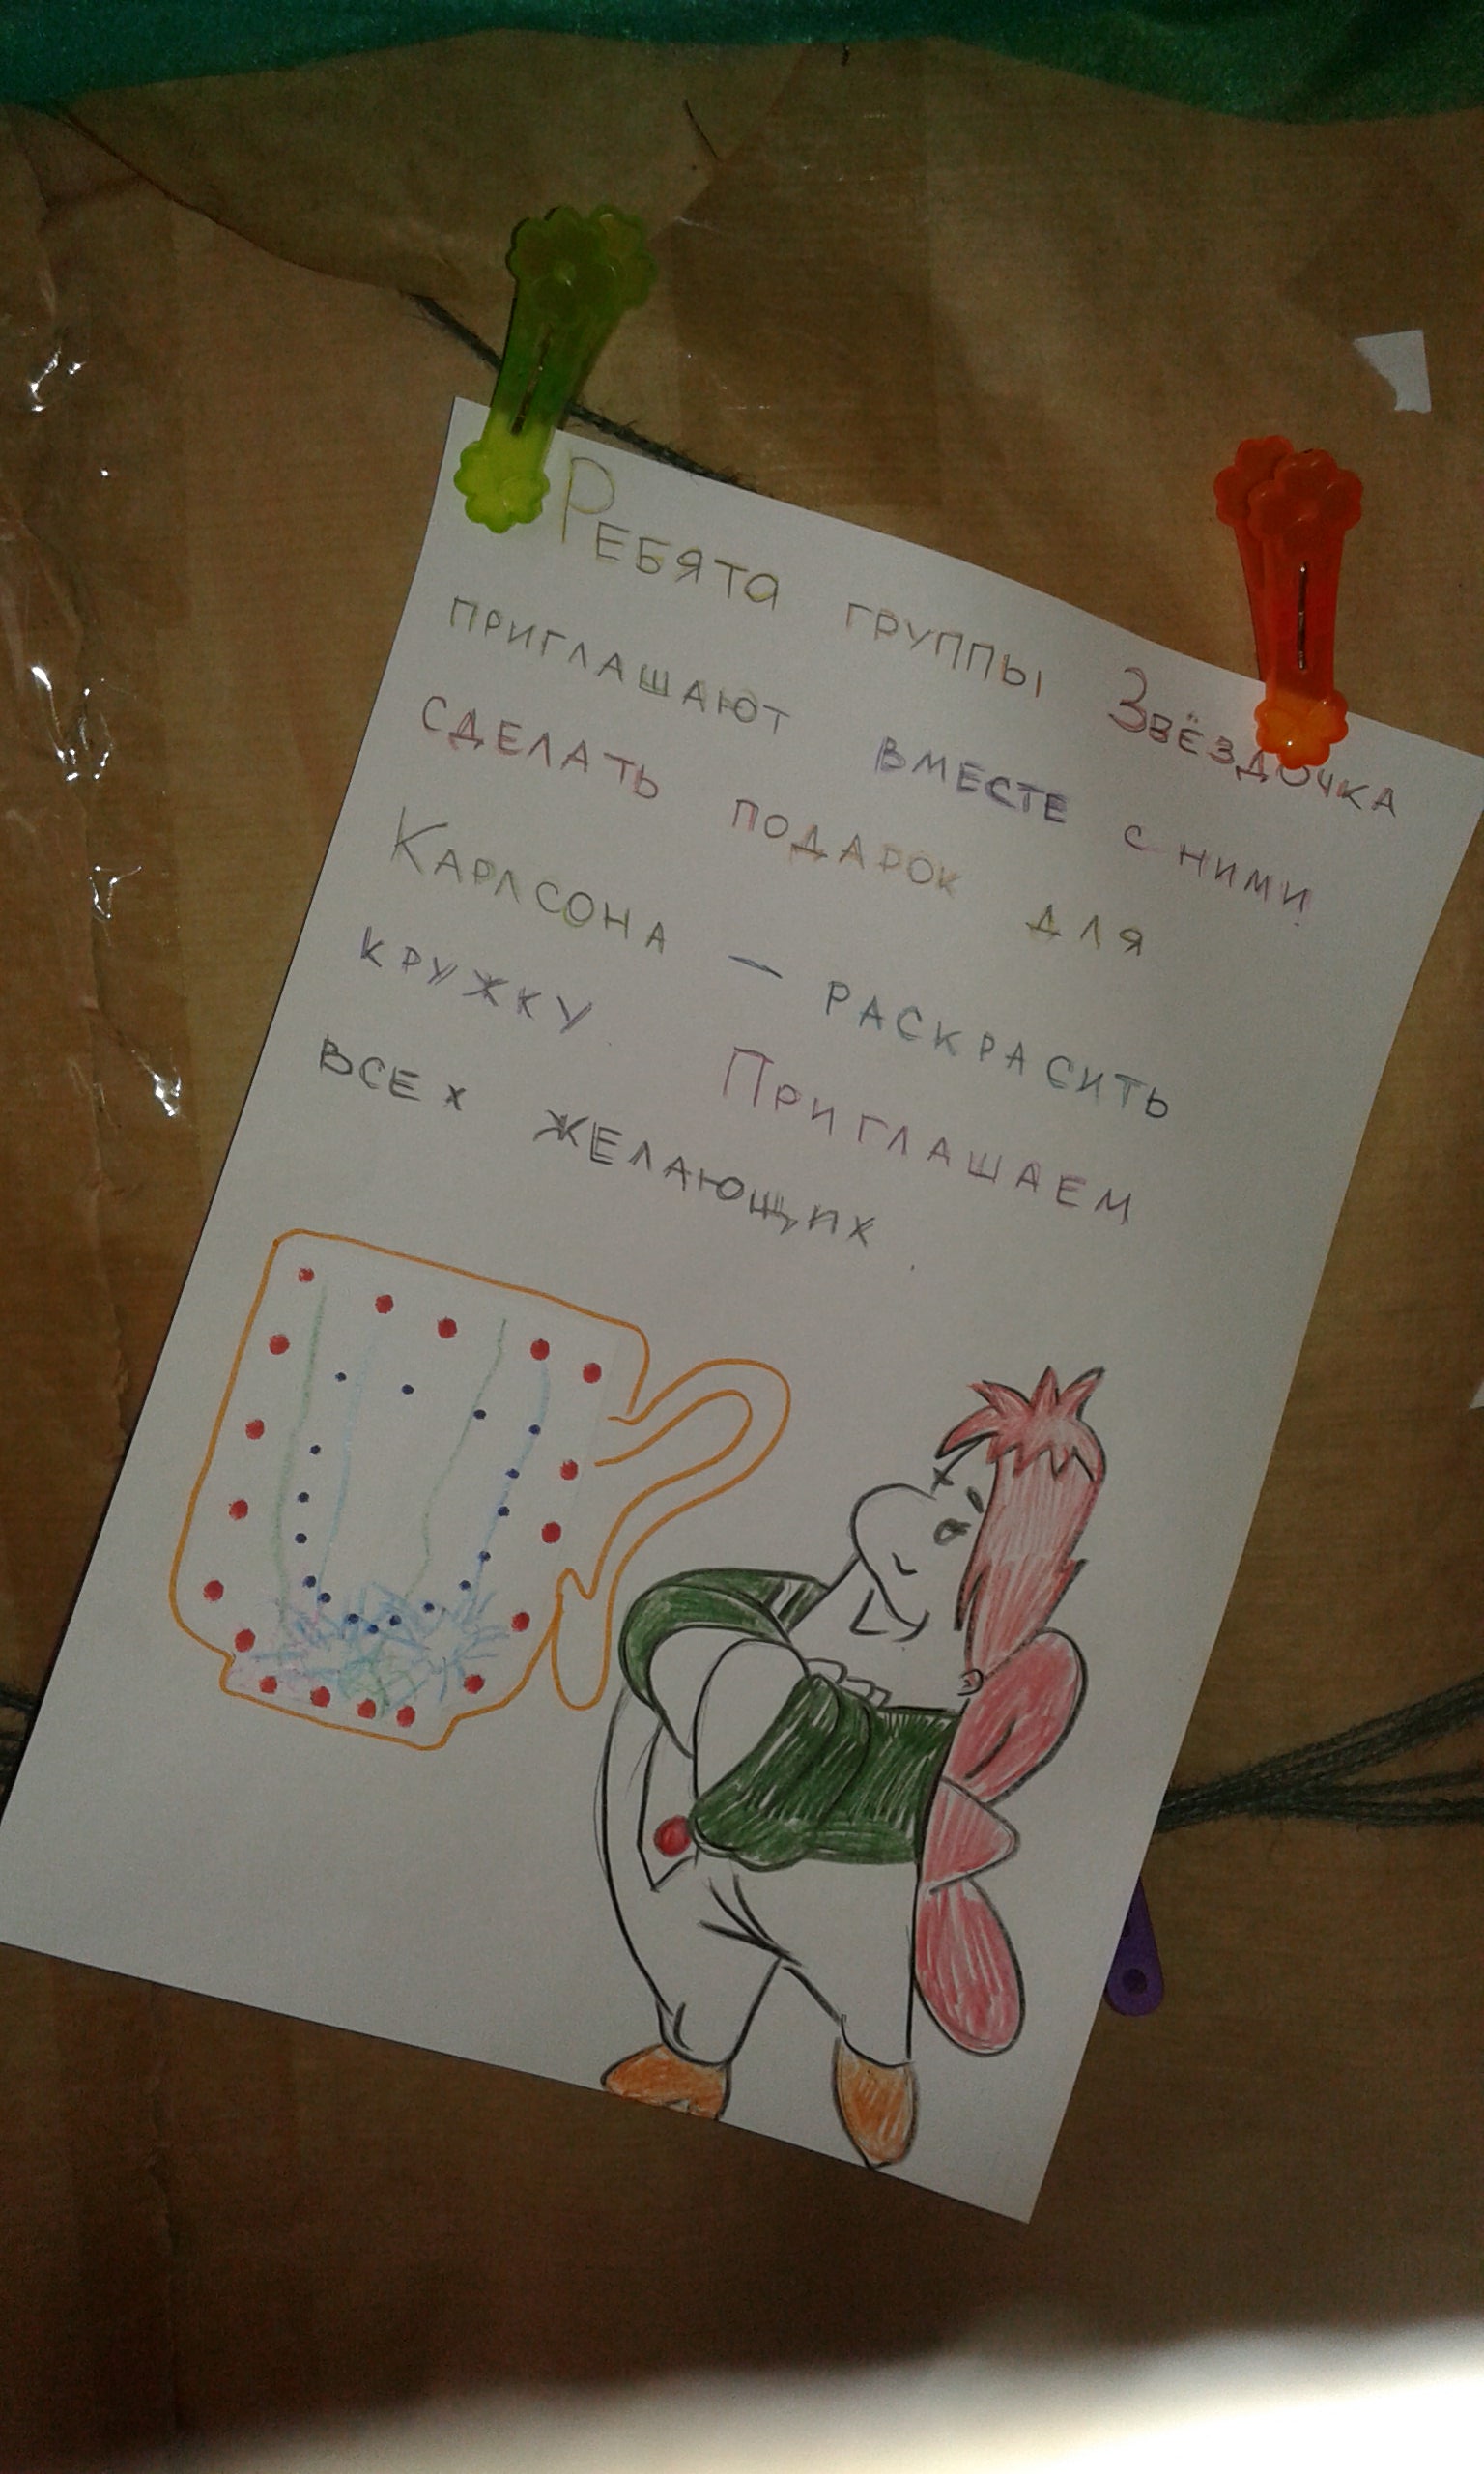 Ребята группы Звёздочка
приглашают вместе с ними
сделать подарок для
Карлсона — раскрасить
кружку Приглашаем
всех желающих.